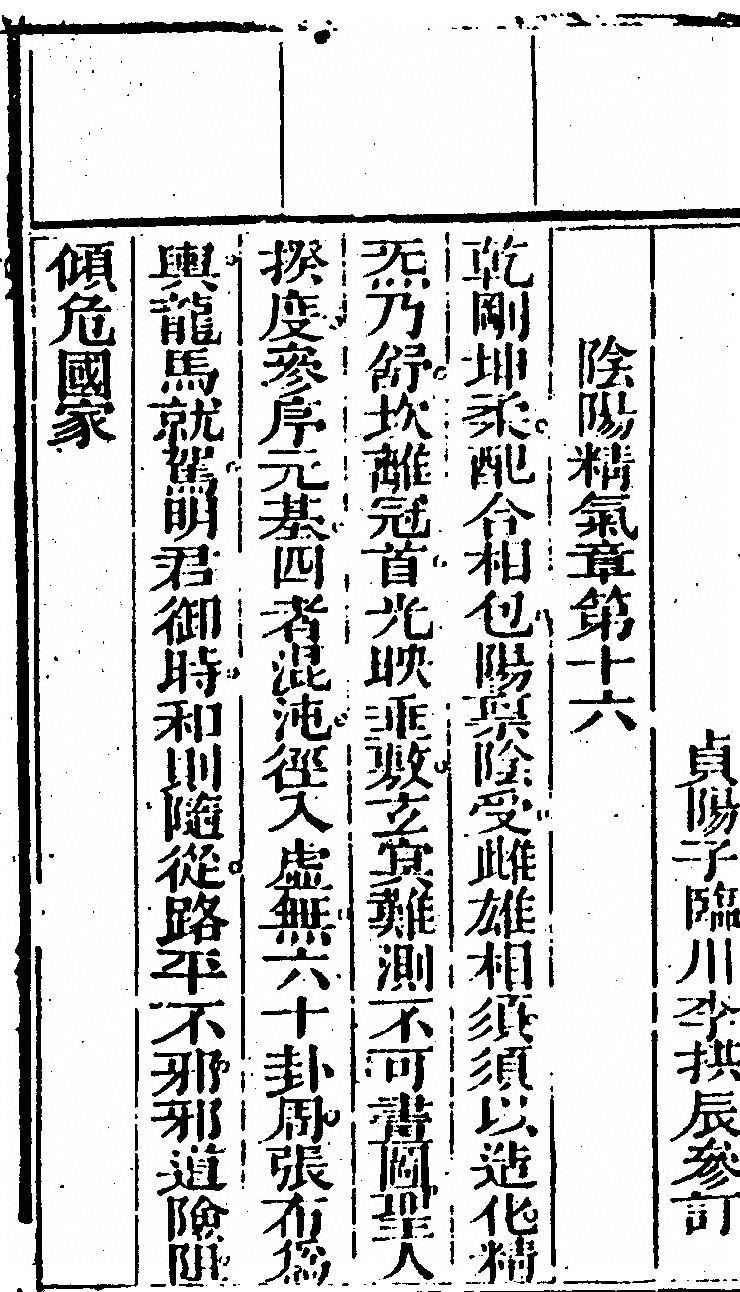 貞陽子臨川李拱辰參訂
陰陽精氣章第十六
乾剛坤柔配合相包陽稟陰受雌雄相須須以造化精
炁乃舒坎離冠首光映垂敷玄冥難測不可畫圖聖人
揆度參序元基四者混沌徑入虛無六十卦周張布爲
輿龍馬就駕明君御時和則隨從路平不邪邪道險阻
傾危國家